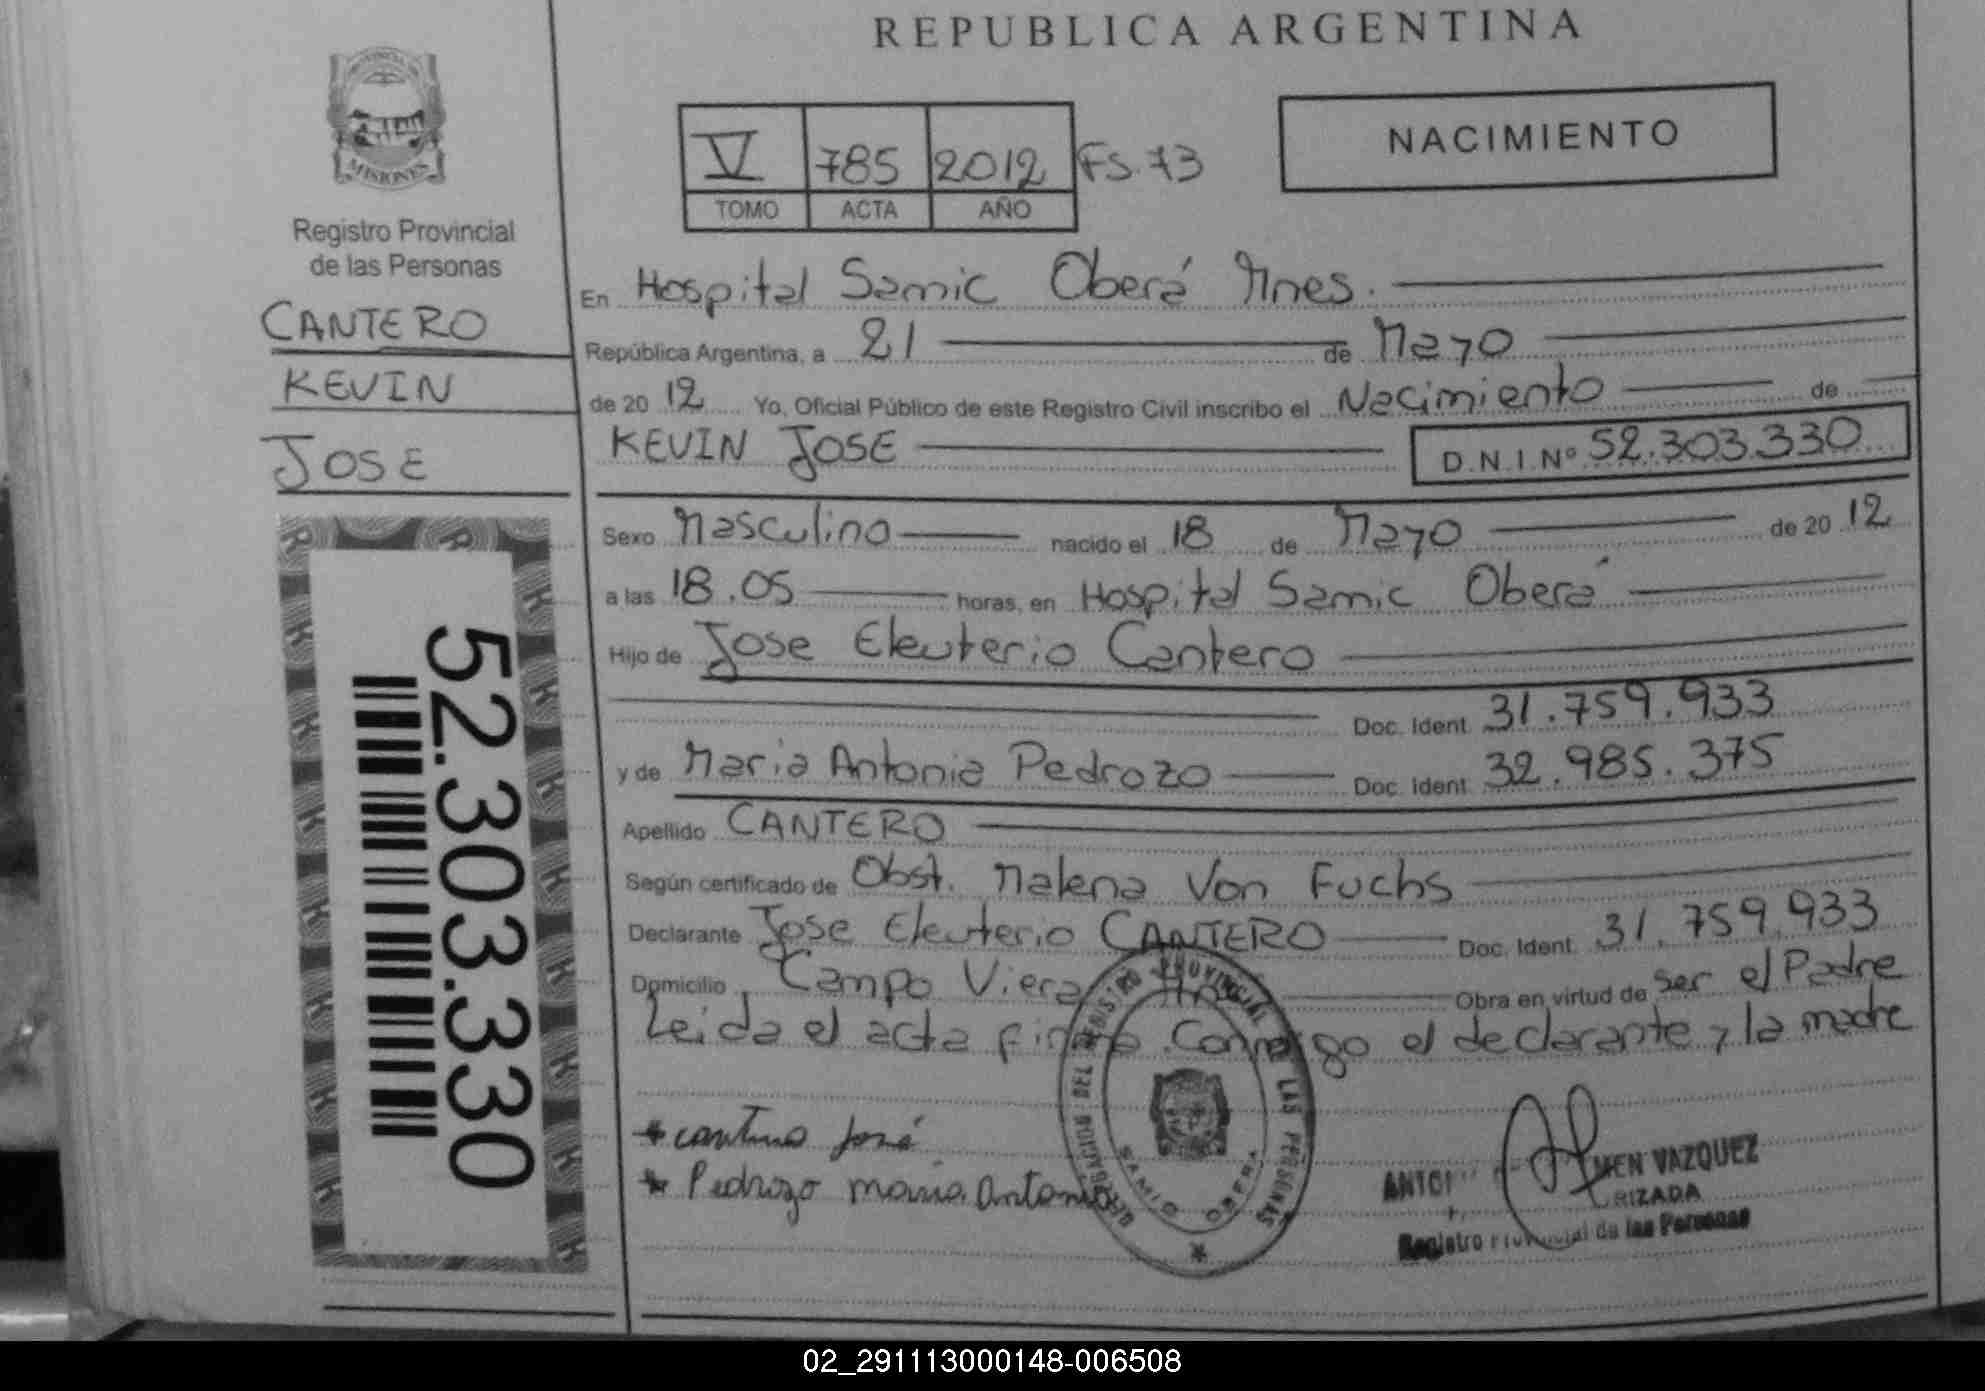 REPUBLICA ARGENTINA
PROVINCIA DE
MISIONES
Registro Provincial
de las Personas
CANTERO
KEVIN
JOSE
52.303.330
V 785 2012 FS.73
TOMO ACTA AÑO
NACIMIENTO
En Hospital Samic Oberá Mnes.
República Argentina, a 21 de Mayo
de 20 12 Yo, Oficial Público de este Registro Civil inscribo el Nacimiento de
KEVIN JOSE D.N.I.Nº 52.303.330
Sexo Masculino nacido el 18 de Mayo de 20 12
a las 18.05 horas, en Hospital Samic Oberá
Hijo de Jose Eleuterio Cantero
Doc. Ident. 31.759.933
y de Maria Antonia Pedrozo Doc. Ident. 32.985.375
Apellido CANTERO
Según certificado de Obst. Malena Von Fuchs
Declarante Jose Eleuterio CANTERO Doc. Ident. 31.759.933
Domicilio Campo Viera Obra en virtud de ser el Padre
Leida el acta firma conmigo el declarante y la madre
José
Pedrozo maria Antonia
DELEGACION DEL REGISTRO PROVINCIAL DE LAS PERSONAS
SAMIC OBERA
VAZQUEZ
Registro Provincial de las Personas
02_291113000148-006508